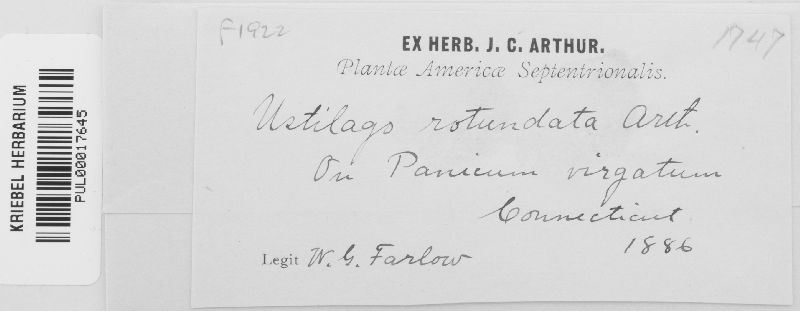 KRIEBEL HERBARIUM
PUL00017645
F1922
1747
EX HERB. J. C. ARTHUR.
Plantæ Americæ Septentrionalis.
Ustilago rotundata Arth.
On Panicum virgatum
Connecticut
1886
Legit W. G. Farlow